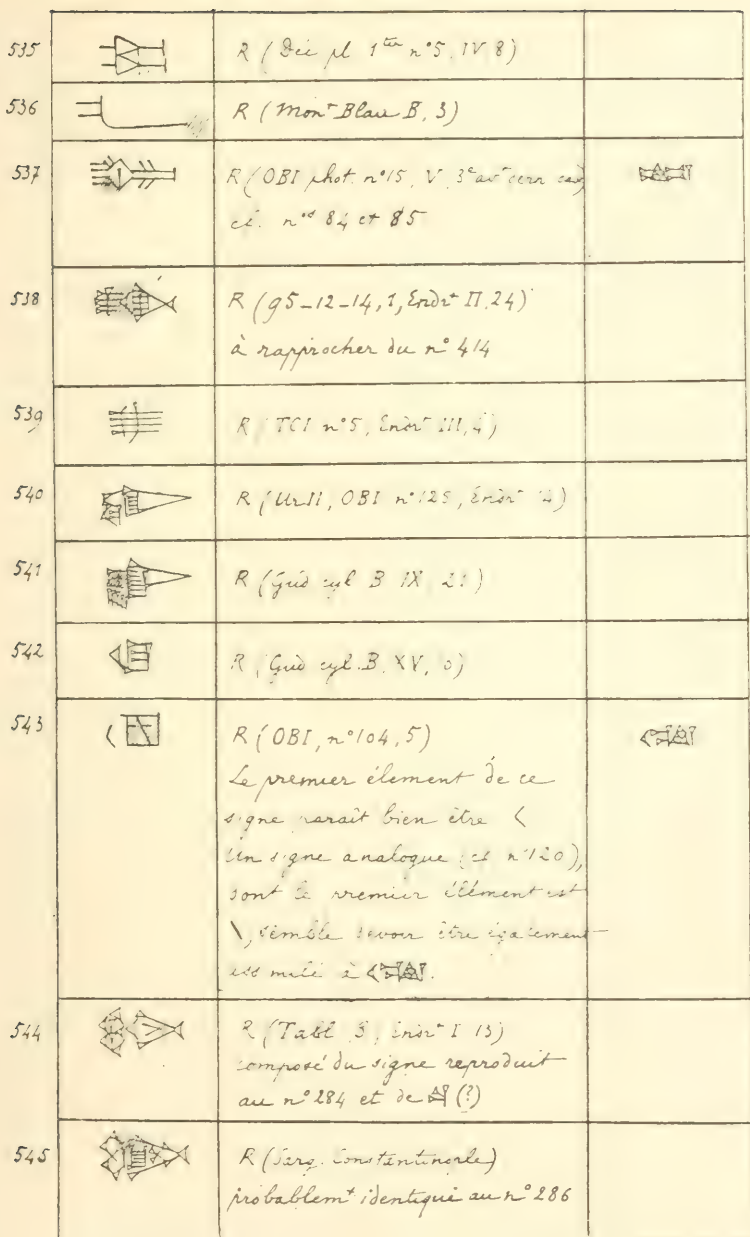 535 R (Déc pl 1ter n°5, IV 8)
536 R (Mont Blau B, 3)
537 R (OBI phot. n°15, V, 3e avt dern
cf. nos 84 et 85
538 R (95-12-14, 1, Endrt II, 24)
à rapprocher du n° 414
539 R (TCI n°5, Endrt III, 4)
540 R (Ur II, OBI n°125, Endrt
541 R (Gud cyl B IX, 21)
542 R (Gud cyl. B, XV,
543 R (OBI, n°104, 5)
Le premier élément de ce
signe paraît bien être 𒌋
Un signe analogue (cf n°120),
dont le premier élément est
\, semble devoir être également
assimilé à
544 R (Tabl 3, Endrt I 13)
composé du signe reproduit
au n° 284 et de (?)
545 R (Sarg. Constantinople)
probablemt identique au n° 286